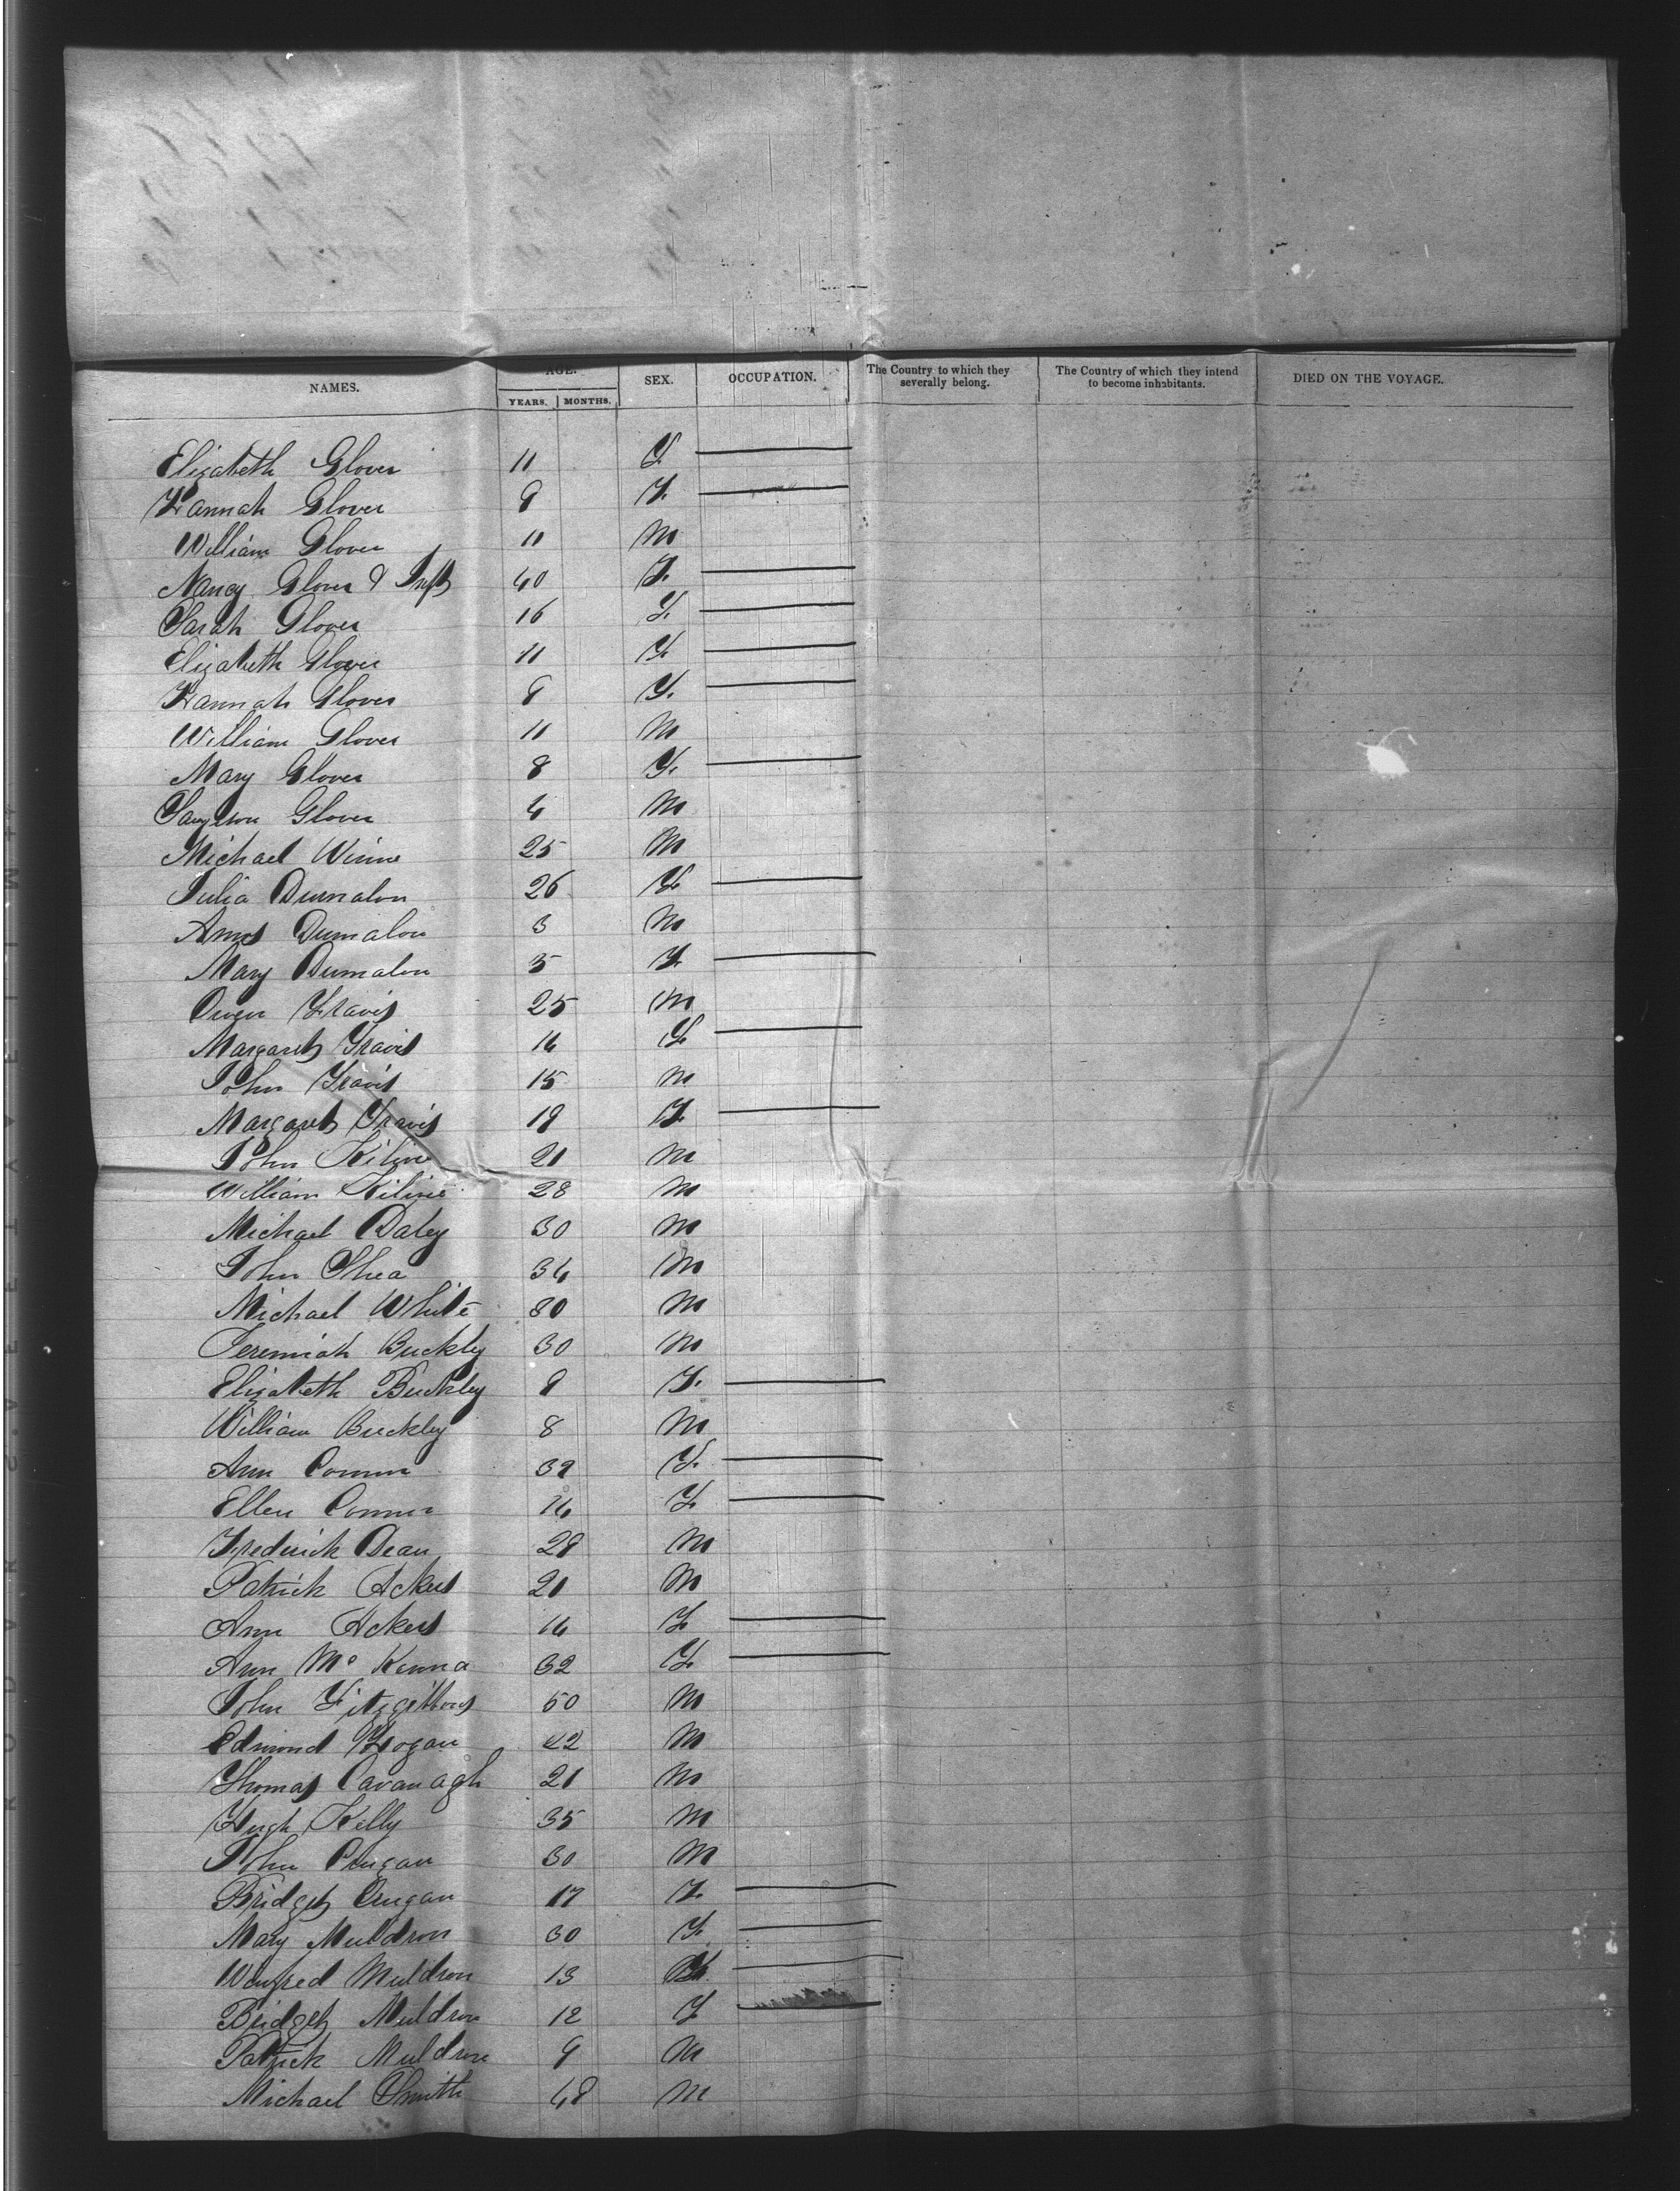 NAMES. AGE. SEX. OCCUPATION. The Country to which they severally belong. The Country of which they intend to become inhabitants. DIED ON THE VOYAGE.
YEARS. MONTHS.
Elizabeth Glover 11 F
Hannah Glover 9 F.
William Glover 11 M
Nancy Glover & Inft 40 F.
Sarah Glover 16 F.
Elizabeth Glover 11 F
Hannah Glover 9 F.
William Glover 11 M
Mary Glover 8 F.
Glover 4 M
Michael Winne 25 M
Julia Dumalon 26 F
Dumalon 3 M
Mary Dumalon 5 F
Owen Travis 25 M
Margaret Travis 14 F
John Travis 15 M
Margaret Travis 19 F.
John Kiline 21 M
William Kiline 28 M
Michael Daley 30 M
John Shea 34 M
Michael White 30 M
Jeremiah Buckley 30 M
Elizabeth Buckley 9 F.
William Buckley 8 M
Ann Connor 39 F.
Ellen Connor 14 F
Frederick Dean 29 M
Patrick Ackers 21 M
Ann Ackers 14 F
Ann Mc Kenna 32 F.
John Fitzgibbons 50 M
Edmond Hogan 22 M
Thomas Cavanagh 21 M
Hugh Kelly 35 M
John Crugan 30 M
Bridget Crugan 17 F
Mary Muldron 30 F.
Winfred Muldron 13
Bridget Muldron 12 F
Patrick Muldron 9 M
Michael Smith 48 M